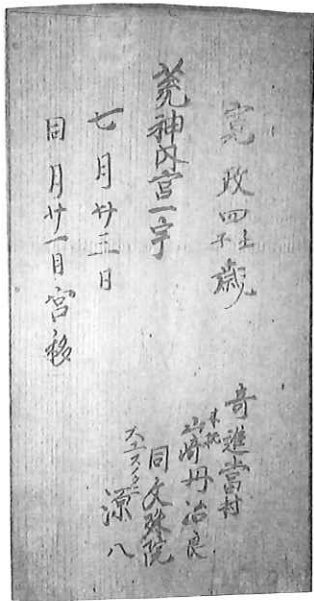 寛政四壬子歳
荒神内宮一宇
七月廿三日
同月廿一日宮移
寄進當村
山崎丹治良
同文殊院
源八